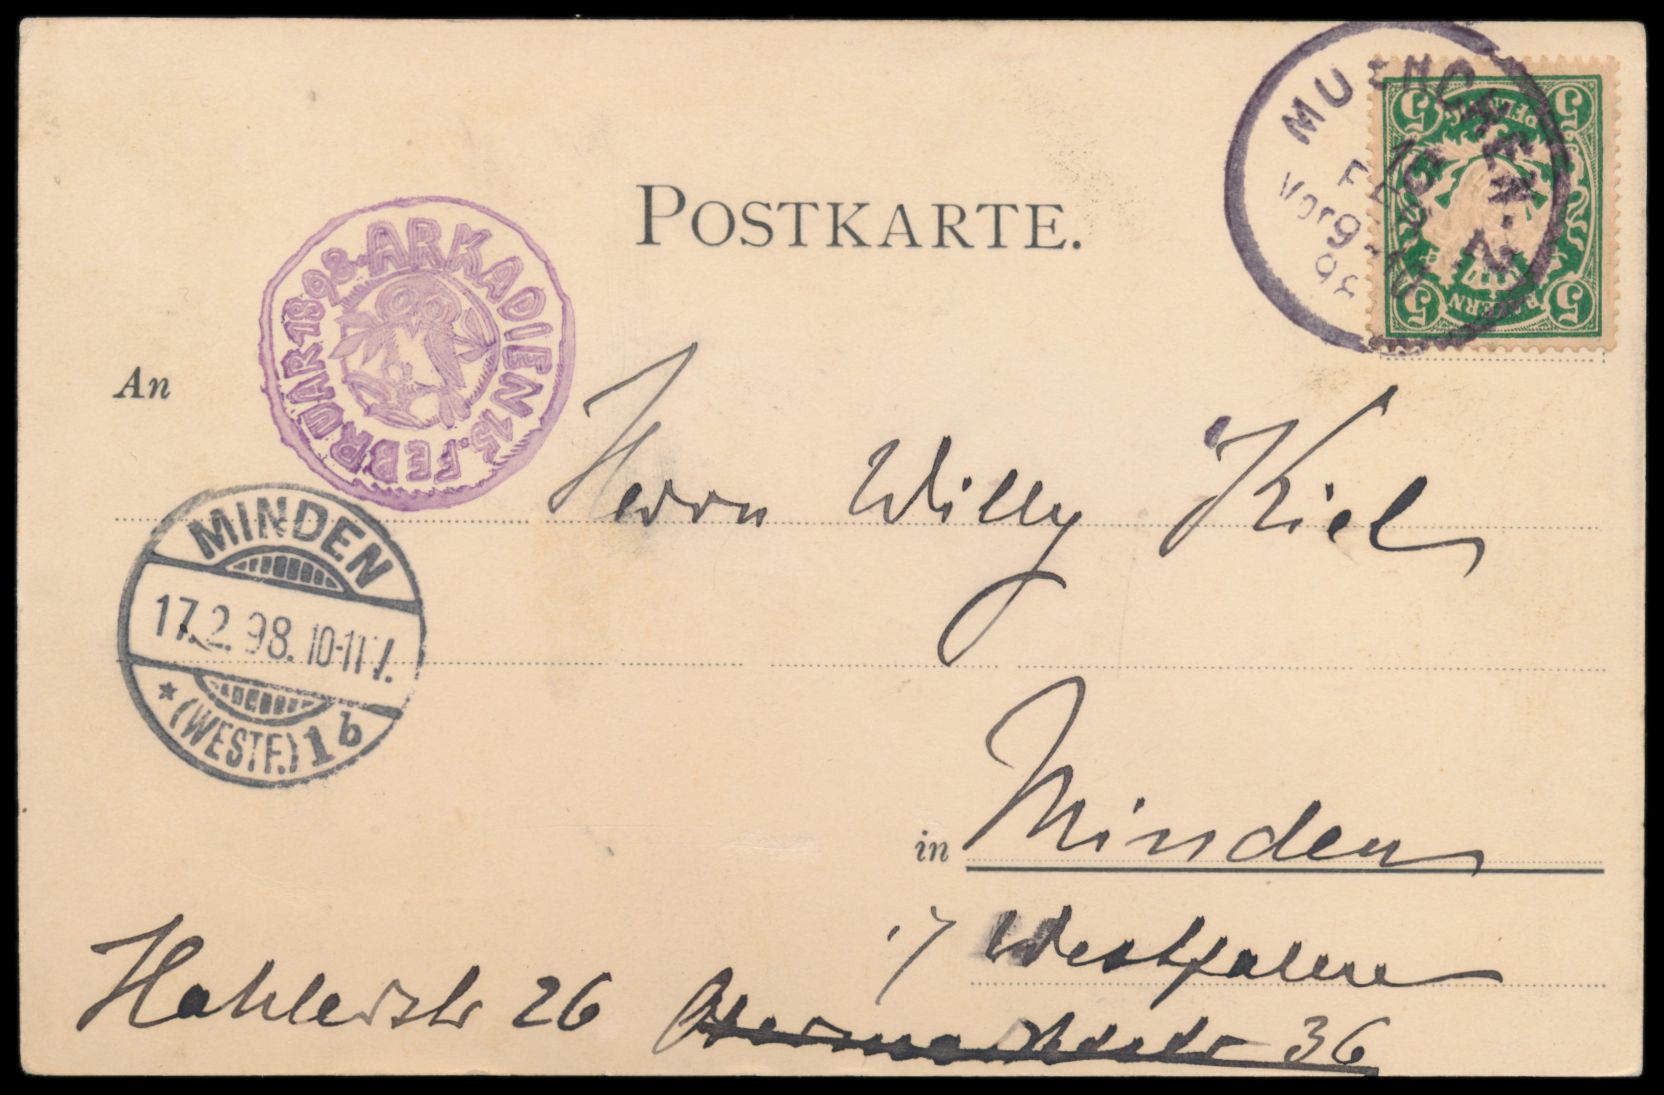 MUENCHEN. 2
Vorg
98
5 5
BAYERN
5 5
POSTKARTE.
ARKADIEN 15. FEBRUAR 1898.
An
Herrn Willy Kiel
MINDEN
17.2.98. 10-11V.
* (WESTF.) 1 b
in Minden
i/ Westfalen
Hahlerstr 26 36